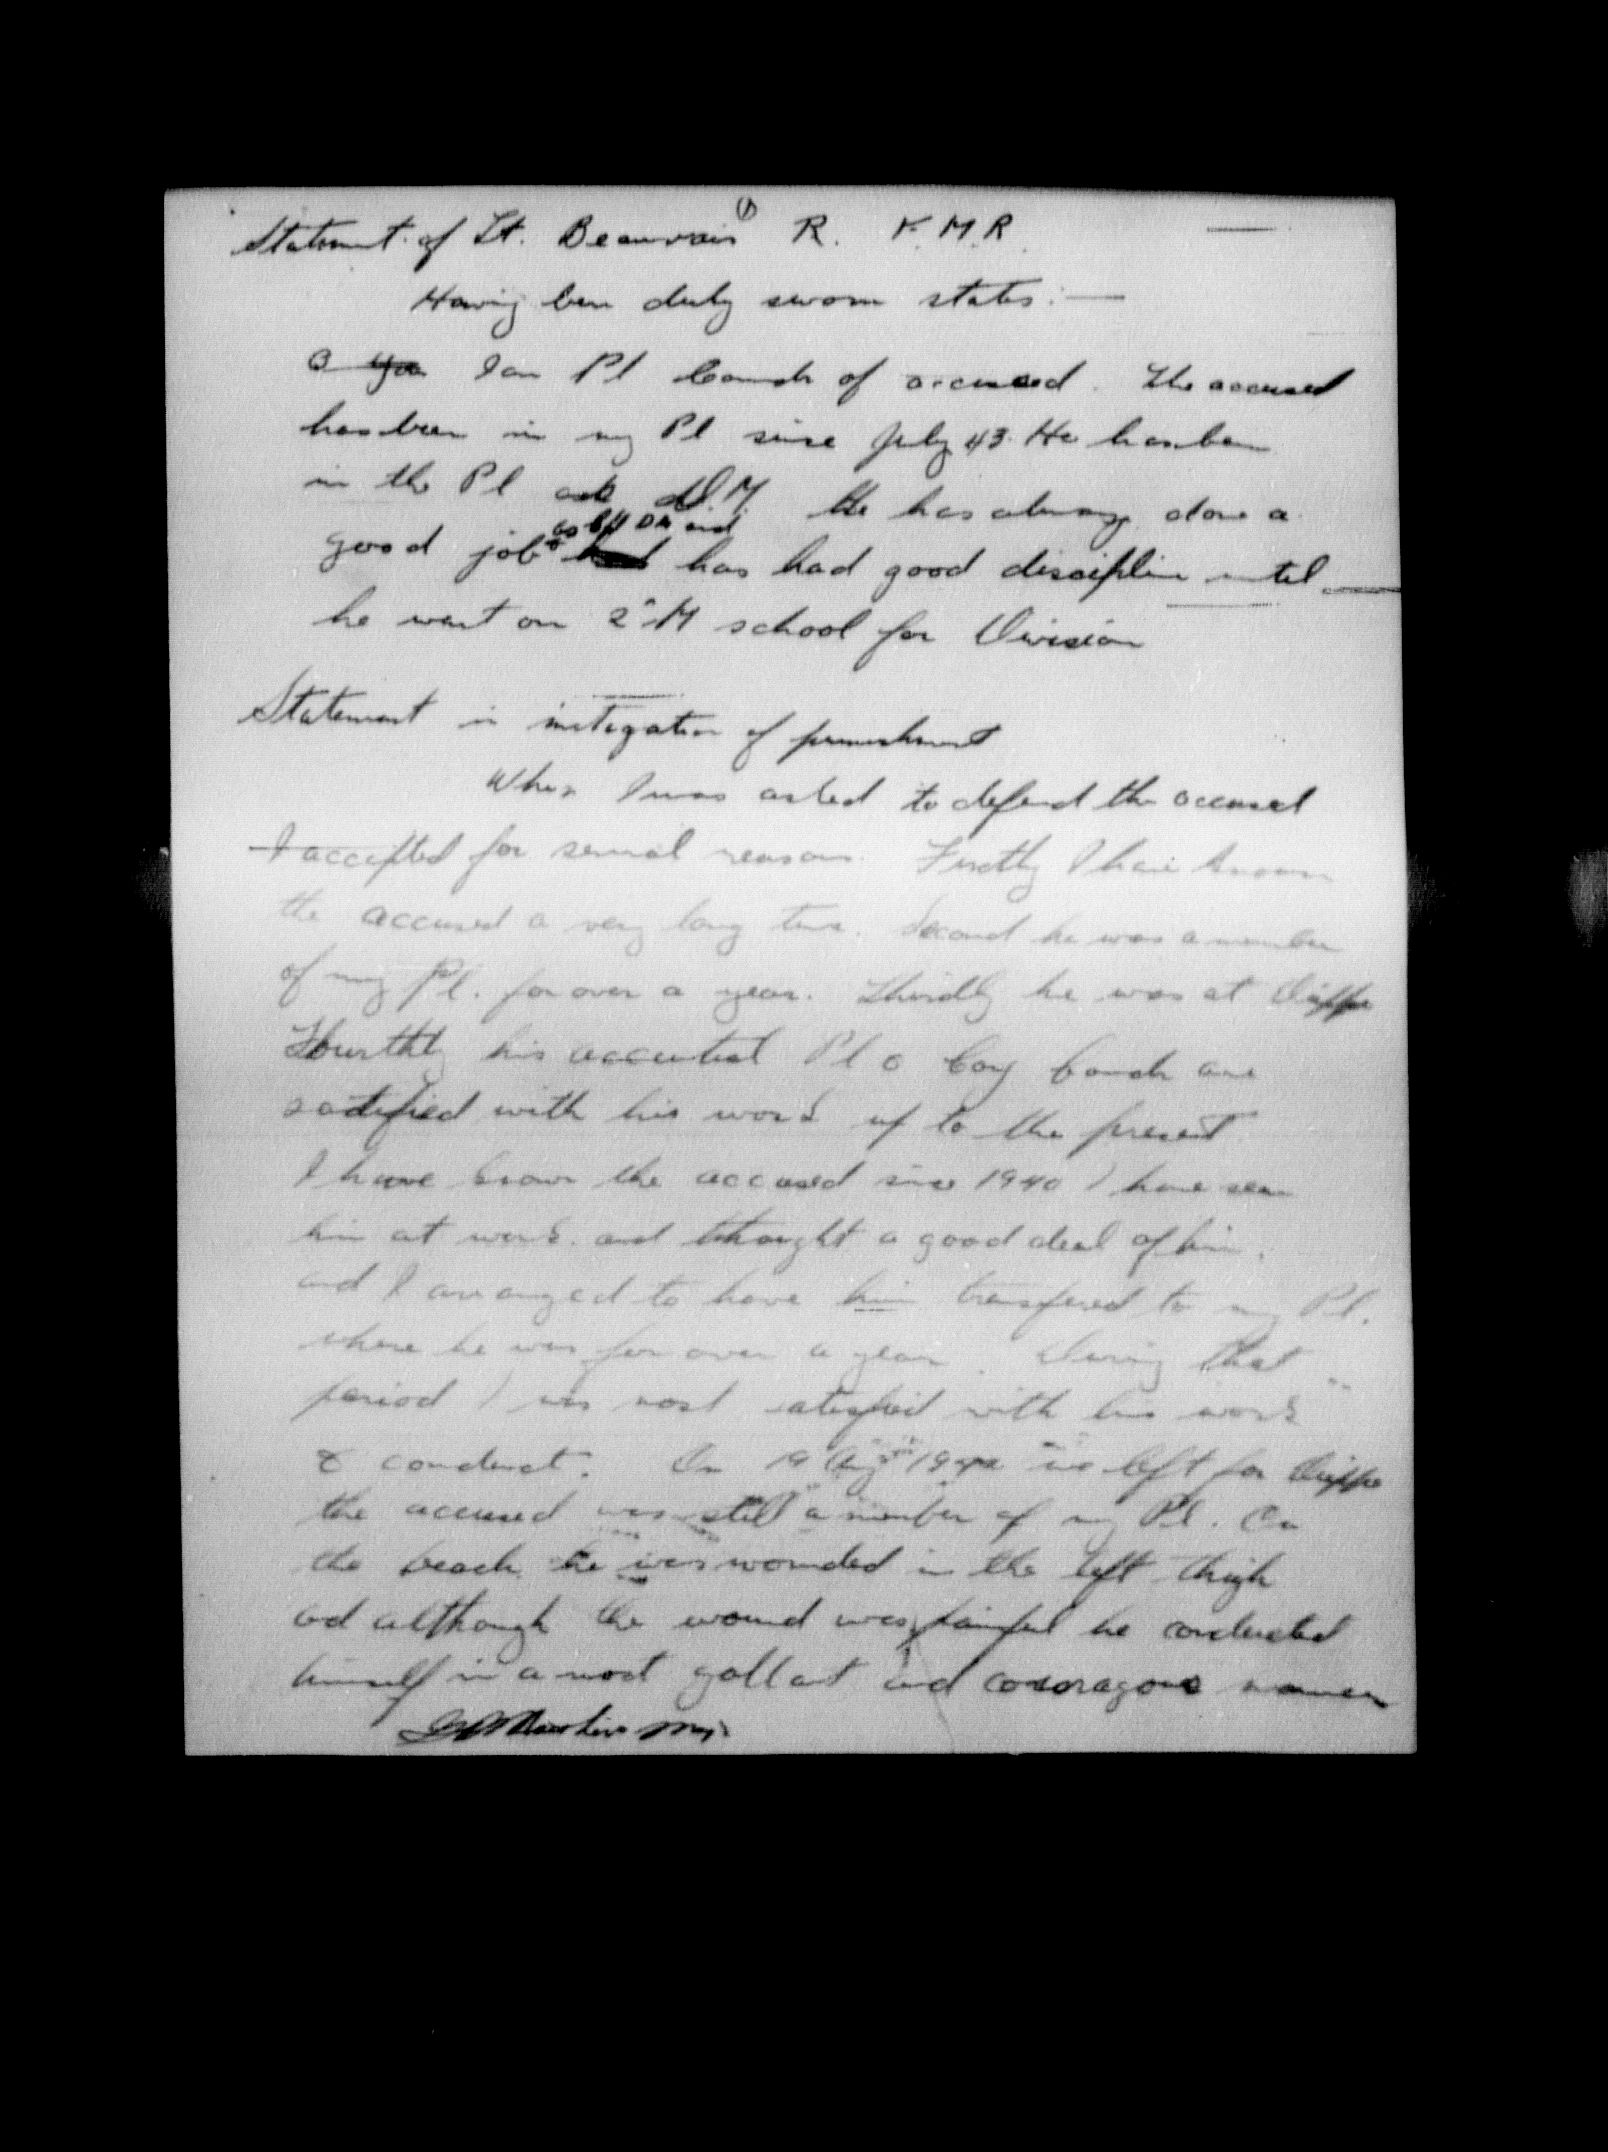 Statement of Lt. Beauvais R. F.M.R
Having been duly sworn states:—
I am Pl Comdr of accused. The accused
has been in my Pl since July 43. He has been
in the Pl D.M. He has always done a
good job as and has had good discipline until
he went on 2" M school for Division
Statement in mitigation of punishment
When I was asked to defend the accused
I accepted for several reasons. Firstly I have known
the accused a very long time. Second he was a member
of my Pl. for over a year. Thirdly he was at Dieppe
Fourthly his Pl & Coy Comdr are
satisfied with his work up to the present
I have known the accused since 1940 I have seen
him at work and thought a good deal of him.
and I arranged to have him transfered to my Pl.
where he was for over a year. During that
period I was most satisfied with his work
& conduct. On 19 Aug 1942 we left for Dieppe
the accused was still a member of my Pl. On
the beach he was wounded in the left thigh
and although the wound was painful he conducted
himself in a most gallant and couragous manner